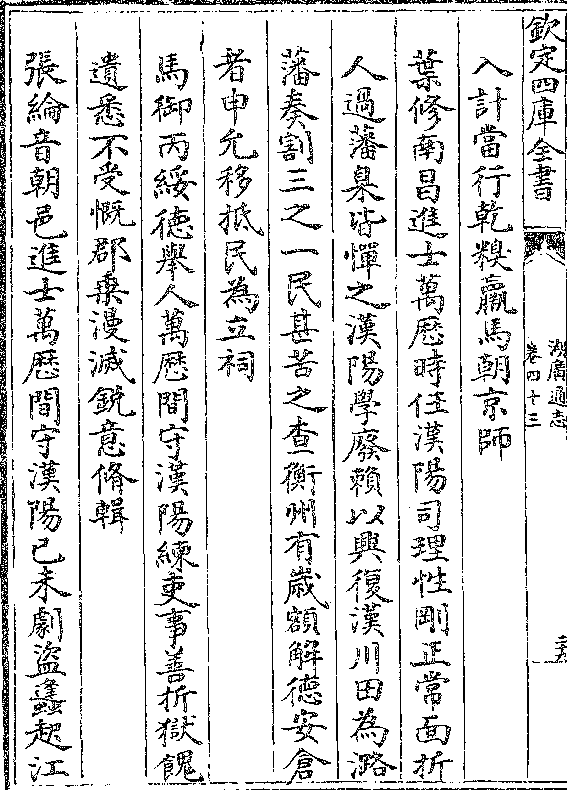 欽定四庫全書
湖廣通志
卷四十三
入計當行乾糗羸馬朝京師
葉修南昌進士萬厯時任漢陽司理性剛正常面折
人過藩臬皆憚之漢陽學廢賴以興復漢川田為潞
藩奏割三之一民甚苦之查衡州有嵗額解德安倉
者申允移抵民為立祠
馬御丙綏德舉人萬厯間守漢陽練吏事善折獄餽
遺悉不受慨郡乗漫滅鋭意脩輯
張綸音朝邑進士萬厯間守漢陽己未劇盜蠭起江